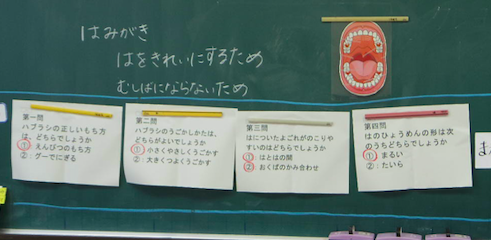 はみがき
はをきれいにするため
むしばにならないため
第一問
ハブラシの正しいもち方
は、どちらでしょうか
①：えんぴつのもち方
②：グーでにぎる
第二問
ハブラシのうごかしかたは、
どちらがよいでしょうか
①：小さくやさしくうごかす
②：大きくつよくうごかす
第三問
はについたよごれがのこりや
すいのはどちらでしょうか
①：はとはの間
②：おくばのかみ合わせ
第四問
はのひょうめんの形は次
のうちどちらでしょうか
①：まるい
②：たいら